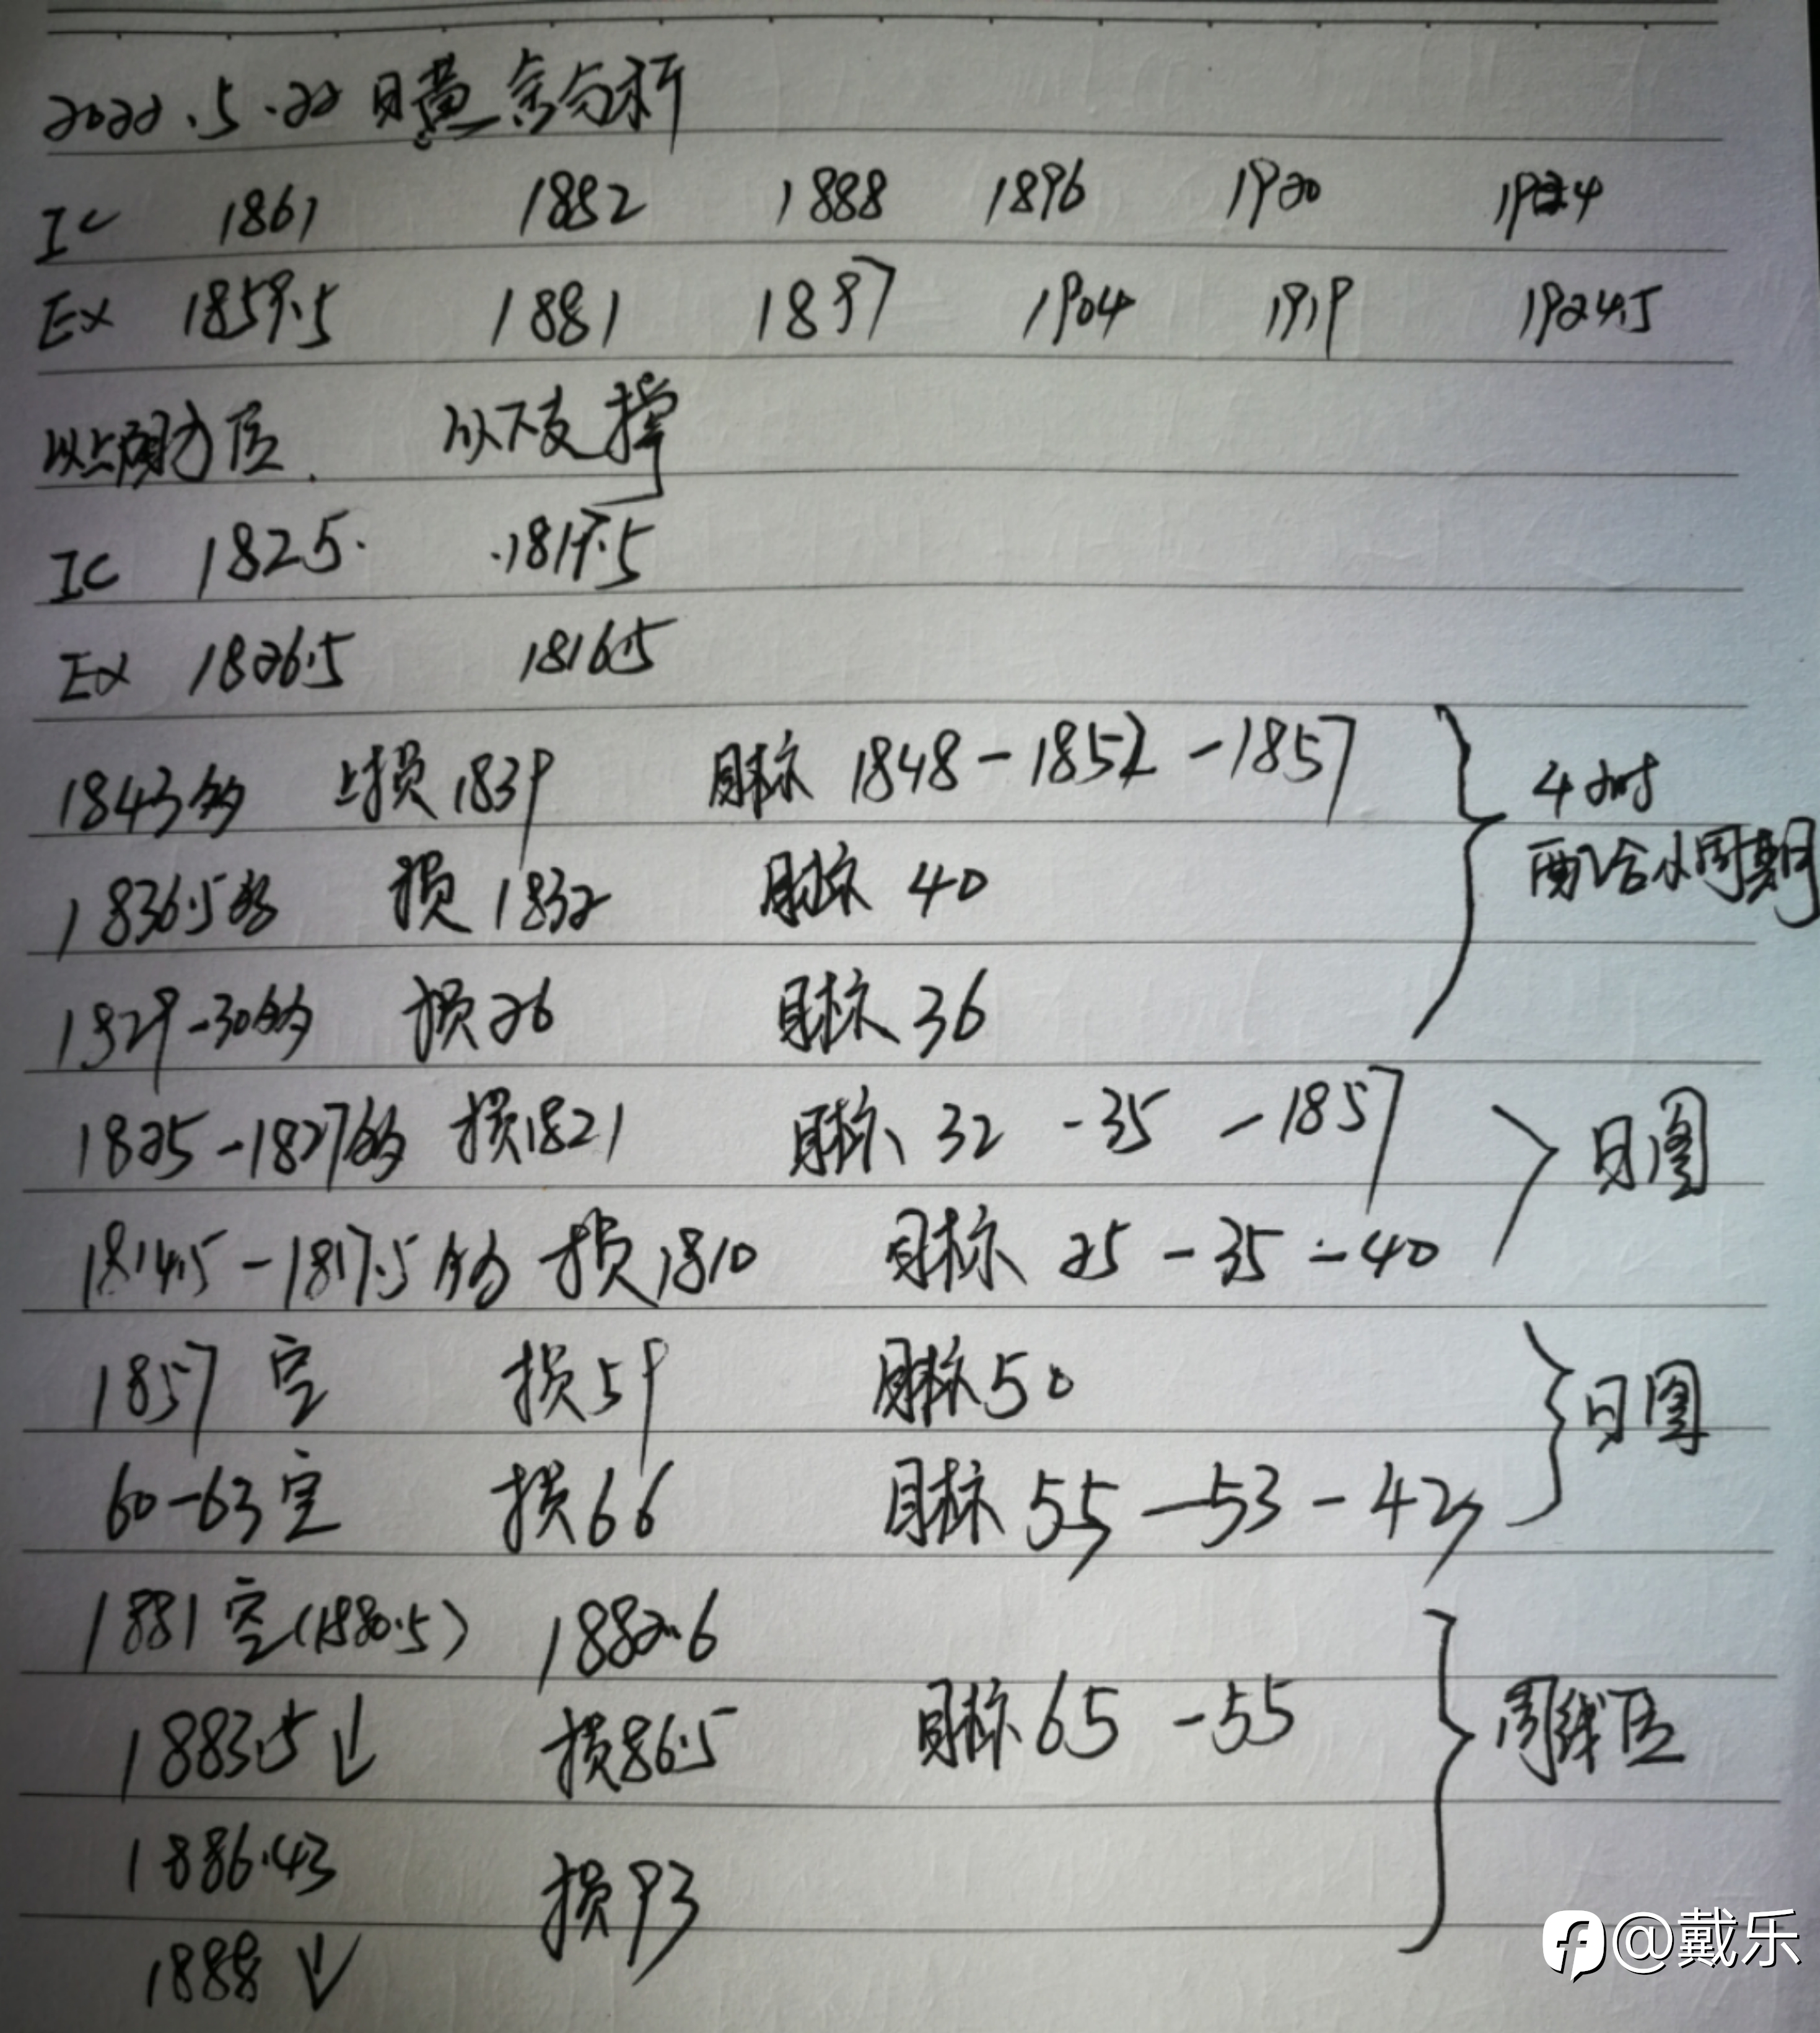 2022.5.22日黄金分析
IC 1861 1882 1888 1896 1920 1924
Ex 1859.5 1881 1897 1904 1919 1924.5
以上阻力位. 以下支撑
IC 1825. .1817.5
Ex 1826.5 1816.5
1843多 止损1839 目标 1848-1852-1857
4小时
配合小周期
1836.5多 损1832 目标 40
1829-30多 损26 目标 36
1825-1827多 损1821 目标 32-35-1857
日图
1814.5-1817.5多 损1810 目标 25-35-40
1857空 损59 目标50
日图
60-63空 损66 目标 55-53-42
1881空(1880.5) 1882.6
1883.5↓ 损86.5 目标65-55
周线位
1886.43 损93
1888↓
@戴乐